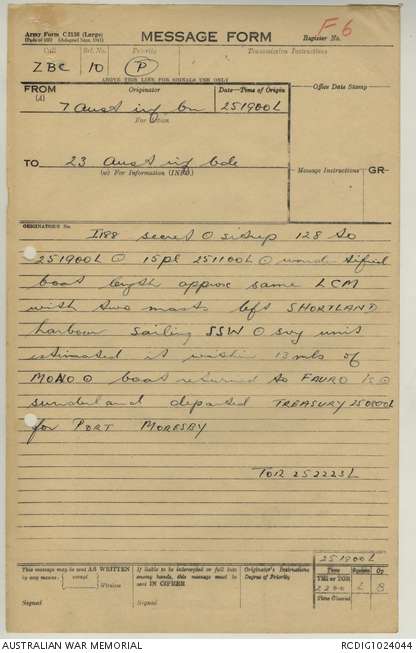 Army Form C2136 (Large)
MESSAGE FORM
Register No. F6
Call
Srl. No.
Priority
Transmission Instructions
ZBC 10 P
ABOVE THIS LINE FOR SIGNALS USE ONLY
FROM
(A)
Originator
Date—Time of Origin
Office Date Stamp
7 Aust inf bn 251900L
For Action
TO
23 Aust inf bde
(w) For Information (INFO)
Message Instructions
GR
ORIGINATOR'S No.
I188 secret O sitrep 128 to
251900L O 15pl 251100L O unidentified
boat length approx same LCM
with two masts left SHORTLAND
harbour sailing SSW O svy unit
estimated it within 13 mls of
MONO O boat returned to FAURO IS O
sunderland departed TREASURY 250800L
for PORT MORESBY
TOR 252223L
251900L
This message may be sent AS WRITTEN
by any means:
except
Wireless
Signed
If liable to be intercepted or fall into
enemy hands, this message must be
sent IN CIPHER
Signed
Originator's Instructions
Degree of Priority
Time
System
Op
THI or TOR
L B
Time Cleared
AUSTRALIAN WAR MEMORIAL
RCDIG1024044